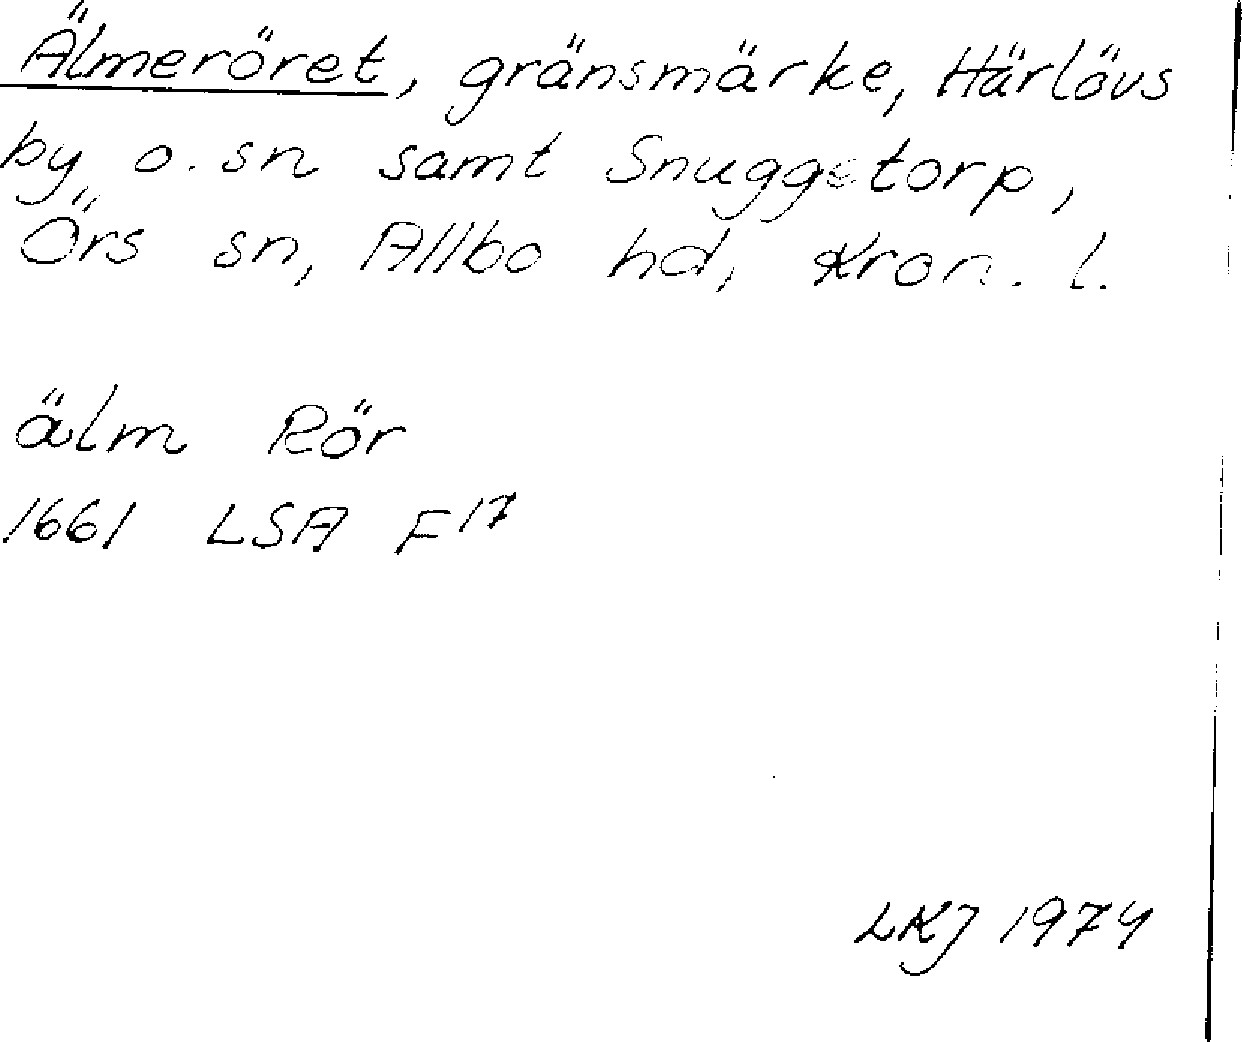 Älmeröret, gränsmärke, Härlövs
by o. sn samt Snuggetorp,
Örs sn, Allbo hd, Kron. l.
älm Rör
1661 LSA F17
LKJ 1974